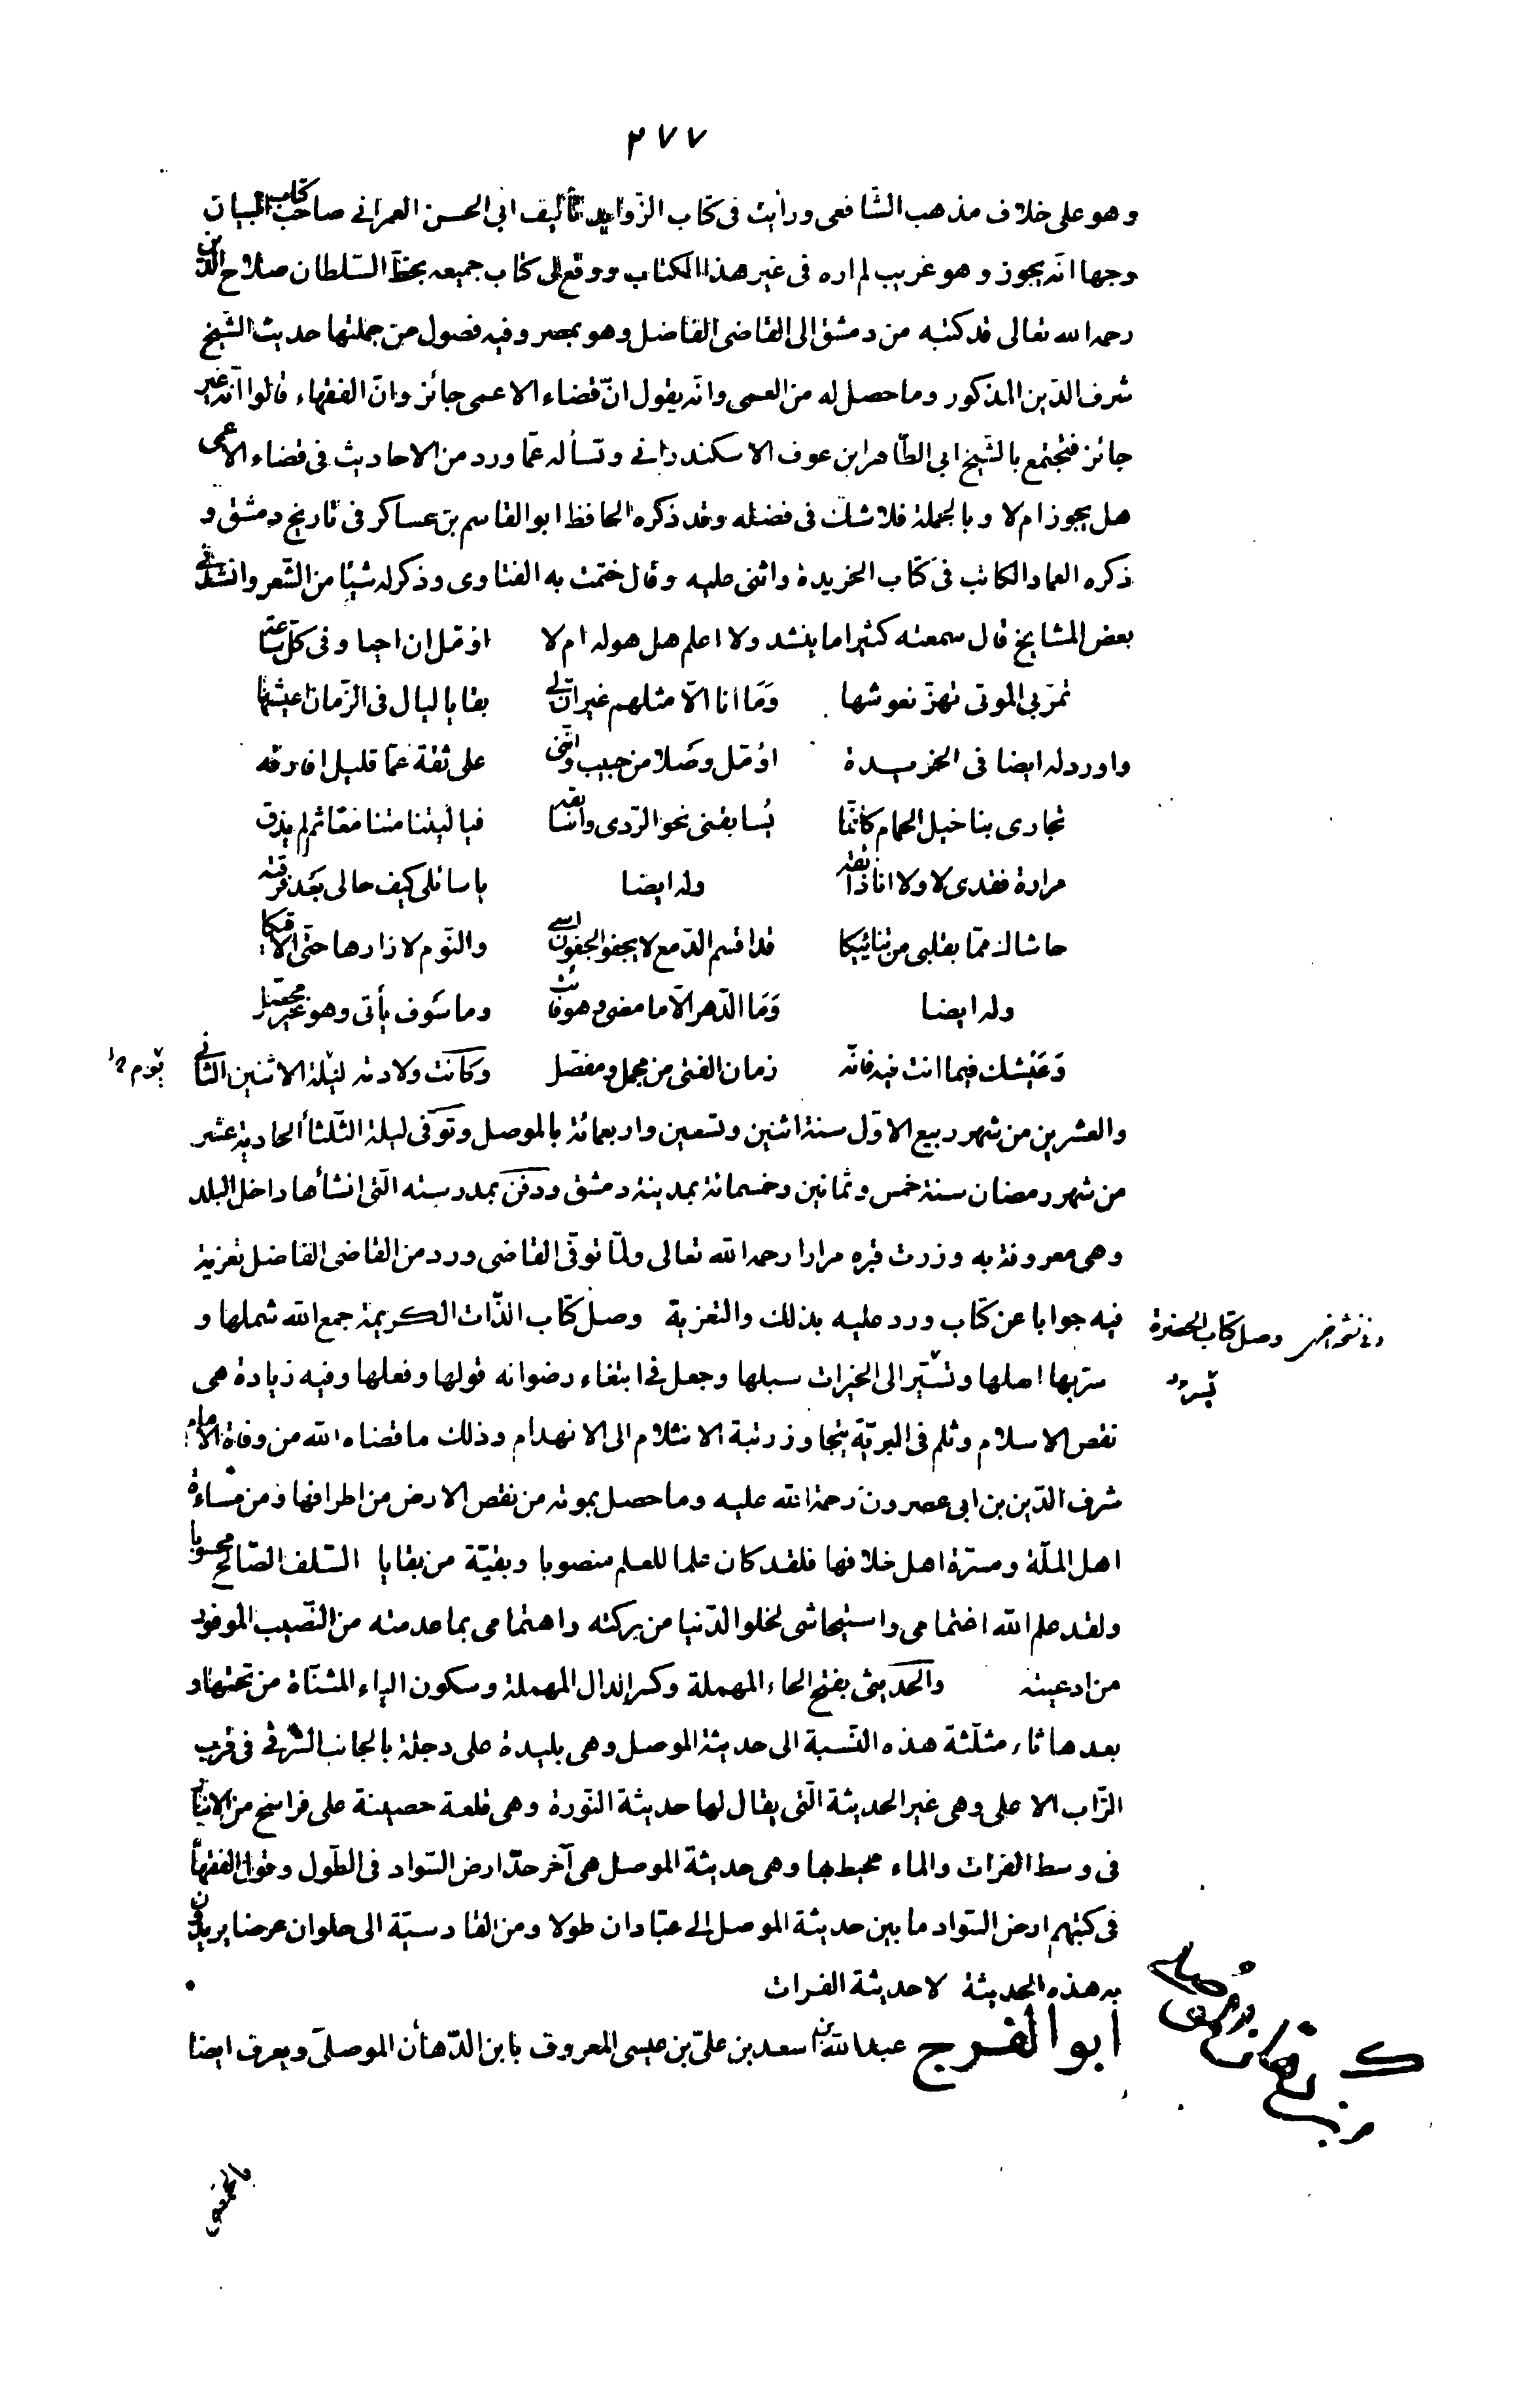 ٢٧٧
وهو على خلاف مذهب الشّافعى ورأيت فى كتاب الزّوايد تأليف ابى الحسن العمرانى صاحب كتاب البيان
وجها انّه يجوز وهو غريب لم اره فى غير هذا الكتاب ووقع الى كتاب جميعه بخطّ السّلطان صلاح الدّين
رحمه الله تعالى قد كتبه من دمشق الى القاضى الفاضل وهو بمصر وفيه فصول من جملتها حديث الشّيخ
شرف الدّين المذكور وما حصل له من العمى وانّه يقول انّ قضاء الاعمى جائز وانّ الفقهاء قالوا انّه غير
جائز فتجتمع بالشّيخ ابى الطّاهر ابن عوف الاسكندرانى وتسأله عمّا ورد من الاحاديث فى قضاء الاعمى
هل يجوز ام لا وبالجملة فلا شك فى فضله وقد ذكره الحافظ ابو القاسم بن عساكر فى تاريخ دمشق و
ذكره العماد الكاتب فى كتاب الخريدة واثنى عليه وقال ختمت به الفتاوى وذكر له شيئا من الشّعر وانشدنى
بعض المشايخ قال سمعته كثيرا ما ينشد ولا اعلم هل هو له ام لا اؤمّل ان احيا وفى كلّ ساعة
تمرّ بى الموتى تهزّ نعوشها وَمَا انا الّا مثلهم غير انّ لى بقايا ليال فى الزّمان اعيشها
واورد له ايضا فى الخريدة اؤمّل وصَلا من حبيب واننّى على ثقة عمّا قليل افارقه
تجارى بنا خيل الحمام كانّما يُسابقنى نحو الرّدى واسابقه فيا ليتنا متنا معًا ثم لم يذق
مرارة فقدى لا ولا انا ذائقه وله ايضا يا سائلى كيف حالى بعَد فرقته
حاشاك ممّا بقلبى من تنائيكا قد اقسم الدّمع لا يجفو الجفون اسى والنّوم لا زارها حتّى الاقيكا
وله ايضا وَمَا الدّهر الّا ما مضى وهو فائت وما سَوف يأتى وهو غير محصّل
وَعَيْشك فيما انت فيه فانّه زمان الفتى من مجمل ومفصّل وكانت ولادته ليْلة الاثنين الثّانى
والعشرين من شهر ربيع الاوّل سنة اثنين وتسعين واربعمائة بالموصل وتوَفى ليلة الثّلثاء الحادية عشر
من شهر رمضان سنة خمس وثمانين وخمسمائة بمدينة دمشق ودفن بمدرسته الّتى انشأها داخل البلد
وهى معروفة به وزرت قبره مرارا رحمه الله تعالى ولمّا توفّى القاضى ورد من القاضى الفاضل تعزية
فيه جوابا عن كتاب ورد عليه بذلك والتعزية وصل كتاب الذّات الكريمة جمع الله شملها و
وفى نسخة اخرى وصل كتاب الحضرة
سرّ بها اهلها وتسّير الى الخيرات سبلها وجعل فى ابتغاء رضوانه قولها وفعلها وفيه زيادة هى
نقص الاسلام وثلم فى البريّة يتجاوز رتبة الانثلام الى الانهدام وذلك ما قضاه الله من وفاة الامام
شرف الدّين بن ابى عصرون رَحمة الله عليه وما حصل بموته من نقص الارض من اطرافها ومن مساءة
اهل الملّة ومسرّة اهل خلافها فلقد كان علما للعلم منصوبا وبقيّة من بقايا السّلف الصّالح محسوبا
ولقد علم الله اغتمامى واستيحاشى لخلو الدّنيا من بركته واهتمامى بما عدمته من النّصيب الموفور
من ادعيته والحَديثى بفتح الحاء المهملة وكسر الدال المهملة وسكون الياء المثنّاة من تحتها و
بعدها ثاء مثلّثة هذه النّسبة الى حديثة الموصل وهى بليدة على دجلة بالجانب الشّرقى فى قرب
الزّاب الاعلى وهى غير الحديثة الّتى يقال لها حديثة النّورة وهى قلعة حصينة على فراسخ من الانبار
فى وسط الفرات والماء محيط بها وهى حديثة الموصل هى آخر حدّ ارض السّواد فى الطّول وقول الفقهاء
فى كتبهم ارض السّواد ما بين حديثة الموصل الى عبّادان طولا ومن القادسيّة الى حلوان عرضا يريدون
به هذه الحديثة لا حديثة الفرات
ابو الفرج عبد الله بن اسعد بن علىّ بن عيسى المعروف بابن الدّهأن الموصلىّ ويعرف ايضا
بالحمصى